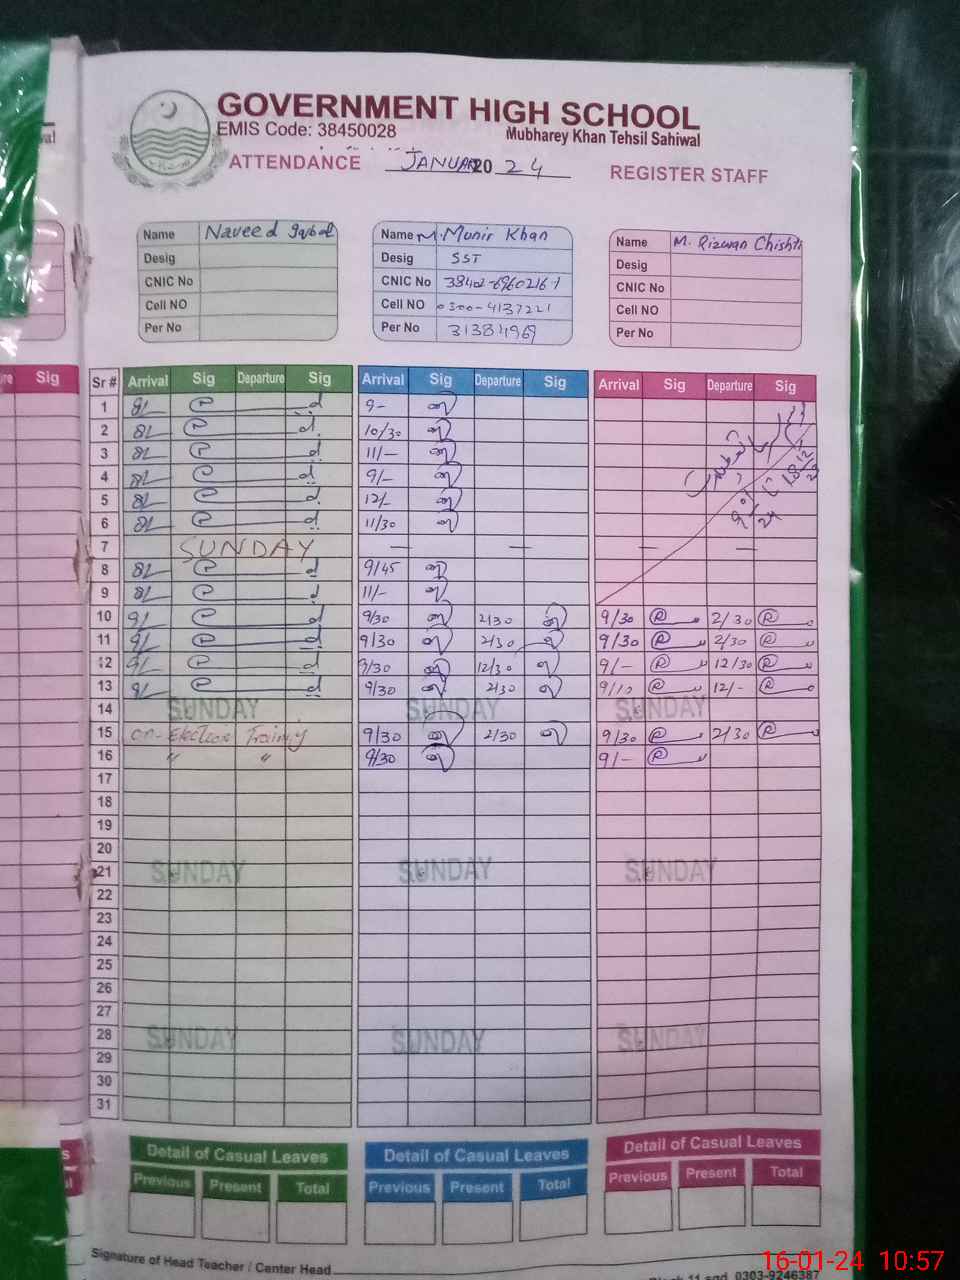 GOVERNMENT HIGH SCHOOL
EMIS Code: 38450028 Mubharey Khan Tehsil Sahiwal
ATTENDANCE JANUARY 2024 REGISTER STAFF
Name Naveed Iqbal Name M. Munir Khan Name M. Rizwan Chishti
Desig Desig SST Desig
CNIC No CNIC No CNIC No
Cell NO Cell NO 0300-4137221 Cell NO
Per No Per No 31384969 Per No
ure Sig Sr # Arrival Sig Departure Sig Arrival Sig Departure Sig Arrival Sig Departure Sig
1 8/- 9-
2 8/- 10/30
3 8/- 11/-
4 8/- 9/-
5 8/- 12/-
6 8/- 11/30
7 SUNDAY — — — —
8 8/- 9/45
9 8/- 11/-
10 9/- 9/30 2/30 9/30 2/30
11 9/- 9/30 2/30 9/30 2/30
12 9/- 9/30 12/30 9/- 12/30
13 9/- 9/30 2/30 9/10 12/-
14 SUNDAY SUNDAY SUNDAY
15 on Election Training 9/30 2/30 9/30 2/30
16 " " 9/30 9/-
17
18
19
20
21 SUNDAY SUNDAY SUNDAY
22
23
24
25
26
27
28 SUNDAY SUNDAY SUNDAY
29
30
31
Detail of Casual Leaves Detail of Casual Leaves Detail of Casual Leaves
Previous Present Total Previous Present Total Previous Present Total
Signature of Head Teacher / Center Head
Block 11 sgd. 0303-9246387
16-01-24 10:57